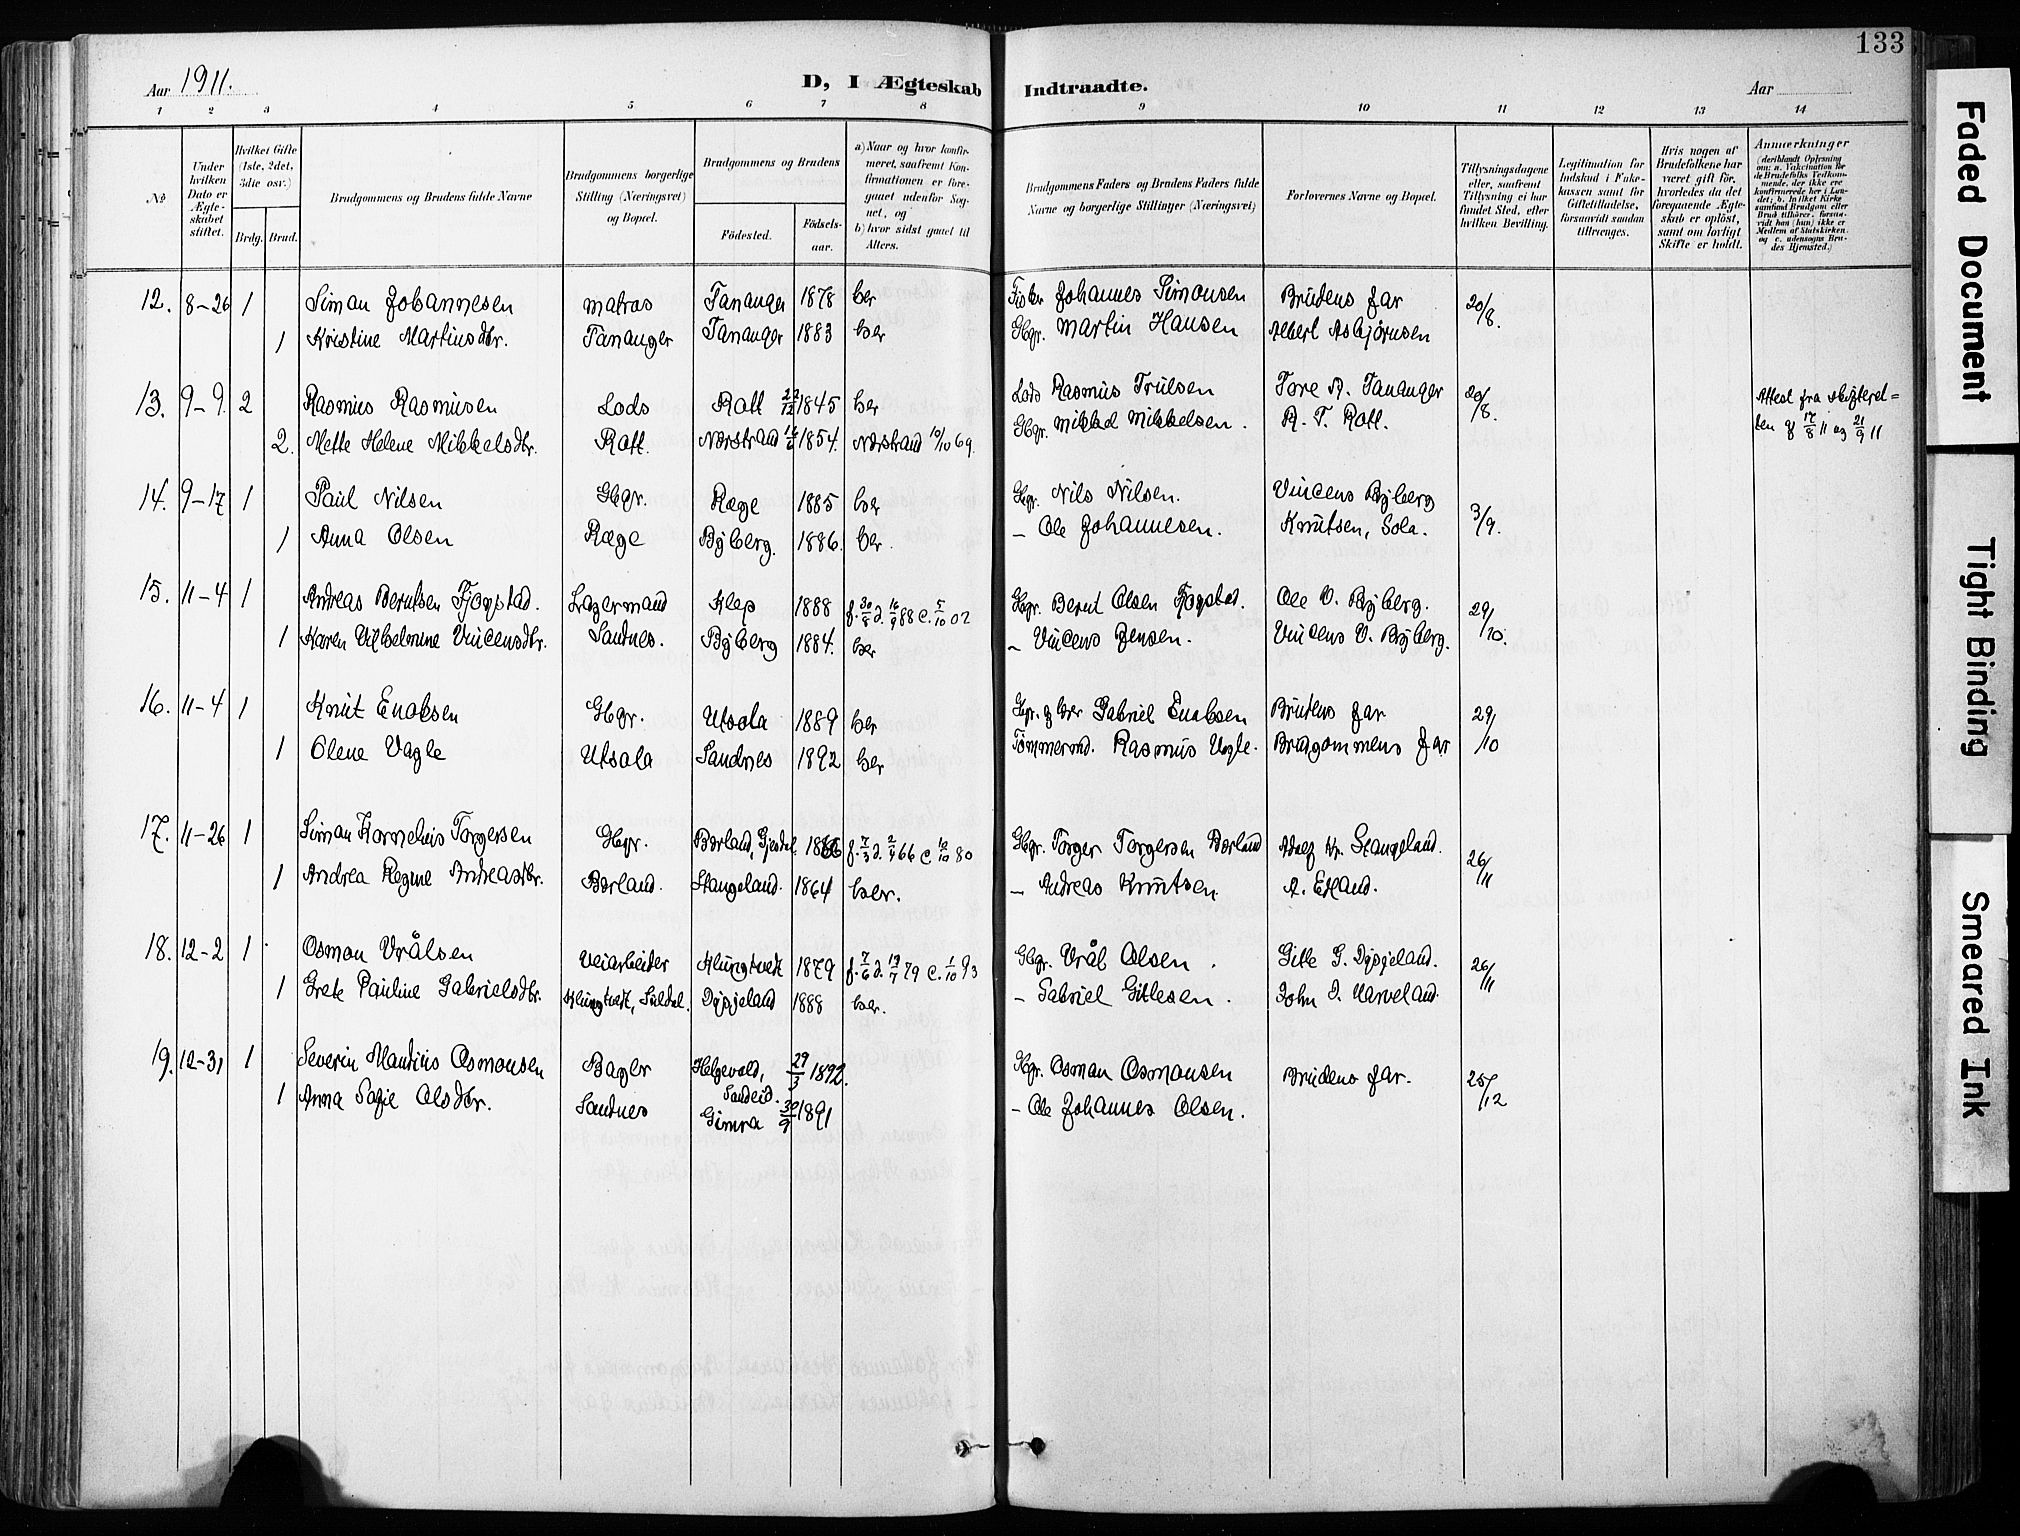 133
Aar 1911.
D, I Ægteskab Indtraadte.
Aar
1 2 3 4 5 6 7 8 9 10 11 12 13 14
No
Under hvilken Dato er Ægteskabet stiftet.
Hvilket Gifte (1ste, 2det, 3die osv.)
Brdg. Brud.
Brudgommens og Brudens fulde Navne
Brudgommens borgerlige Stilling (Næringsvei) og Bopæl.
Brudgommens og Brudens
Fødested.
Fødselsaar.
a) Naar og hvor konfirmeret, saafremt Konfirmationen er foregaaet udenfor Sognet, og
b) hvor sidst gaaet til Alters.
Brudgommens Faders og Brudens Faders fulde Navne og borgerlige Stillinger (Næringsvei)
Forlovernes Navne og Bopæl.
Tillysningsdagene eller, saafremt Tillysning ei har fundet Sted, efter hvilken Bevilling.
Legitimation for Indskud i Enkekassen samt for Giftetilladelse, forsaavidt saadan tiltrænges.
Hvis nogen af Brudefolkene har været gift før, hvorledes da det foregaaende Ægteskab er opløst, samt om lovligt Skifte er holdt.
Anmærkninger
(deriblandt Oplysning om: a. Vaccination for de Brudefolks Vedkommende, der ikke ere konfirmerede her i Landet; b. hvilket Kirkesamfund Brudgom eller Brud tilhører, forsaavidt han (hun) ikke er Medlem af Statskirken, og c. udensogns Brudes Hjemsted.)
12. 8-26 1 Siman Johannesen matros Tananger 1878 her Fisker Johannes Simonsen Brudens far 20/8.
1 Kristine Martinsdtr. Tananger Tananger 1883 her Gbgr. Martin Hansen Albert Asbjørnsen
13. 9-9. 2 Rasmus Rasmusen Lods Rott 22/12 1845 her Lods Rasmus Trulsen Tore R. Tananger 20/8. Attest fra skifteret=
2. Mette Helene Mikkelsdtr. Rott. Nærstrand 16/6 1854. Nærstrand 10/10 69. Gbgr. Mikkel Mikkelsen. R. T. Rott. ten af 17/8 11 og 21/9 11
14. 9-17 1 Paul Nilsen Gbgr. Ræge 1885 her Gbgr. Nils Nilsen. Vincens Byberg 3/9.
1 Anna Olsen Ræge Byberg. 1886. her. - Ole Johannesen. Knutsen, Sola.
15. 11-4 1 Andreas Berntsen Fjogstad. Lagermand Klep 1888 f. 30/8 d. 16/9 88 c. 5/10 02 Gbgr. Bernt Olsen Fjogstad. Ole V. Byberg. 29/10.
1 Karen Vilhelmine Vincensdtr. Sandnes. Byberg 1884. her - Vincens Jensen. Vincens V. Byberg.
16. 11-4 1 Knut Enoksen Gbgr. Utsola 1889 her Gbgr. og lærer Gabriel Enoksen Brudens far 29/10
1 Olene Vagle Utsola Sandnes 1892 her Tømmermd. Rasmus Vagle. Brudgommens far
17. 11-26 1 Siman Kornelius Torgersen Gbgr. Børland, Gjesdal 1866 f. 7/3 d. 2/4 66 c. 10/10 80 Gbgr. Torger Torgersen Børland Adolf Kr. Stangeland. 26/11
1 Andrea Regine Andreasdtr. Børland. Stangeland. 1864 her. - Andreas Knutsen A. Eikland.
18. 12-2 1 Osmon Vrålsen Veiarbeider Klungtvedt 1879 f. 7/6 d. 19/7 79 c. 1/10 93 Gbgr. Vrål Olsen. Gitle G. Dysjeland. 26/11
1 Grete Pauline Gabrielsdtr. Klungtvedt, Suldal. Dysjeland 1888 her. - Gabriel Gitlesen. John I. Harveland.
19. 12-31 1 Severin Mauritius Osmonsen Bager Helgevold, Sandeid. 29/3 1892. Gbgr. Osmon Osmonsen Brudens far. 25/12
1 Anna Sofie Olsdtr. Sandnes Gimra 30/9 1891 - Ole Johannes Olsen.
Faded Document
Tight Binding
Smeared Ink